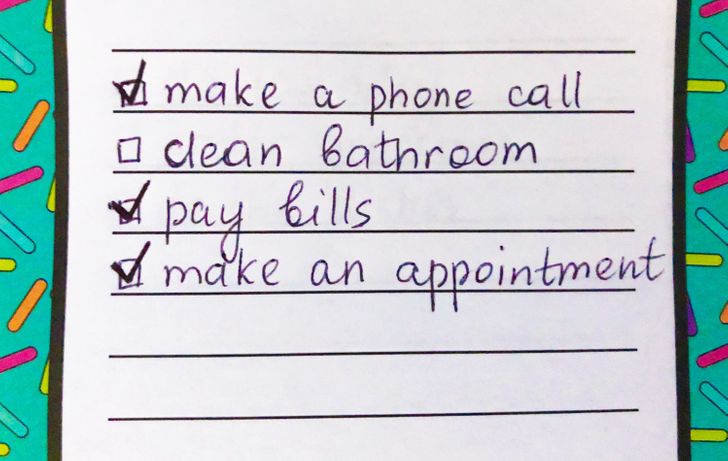 ☑ make a phone call
☐ clean bathroom
☑ pay bills
☑ make an appointment